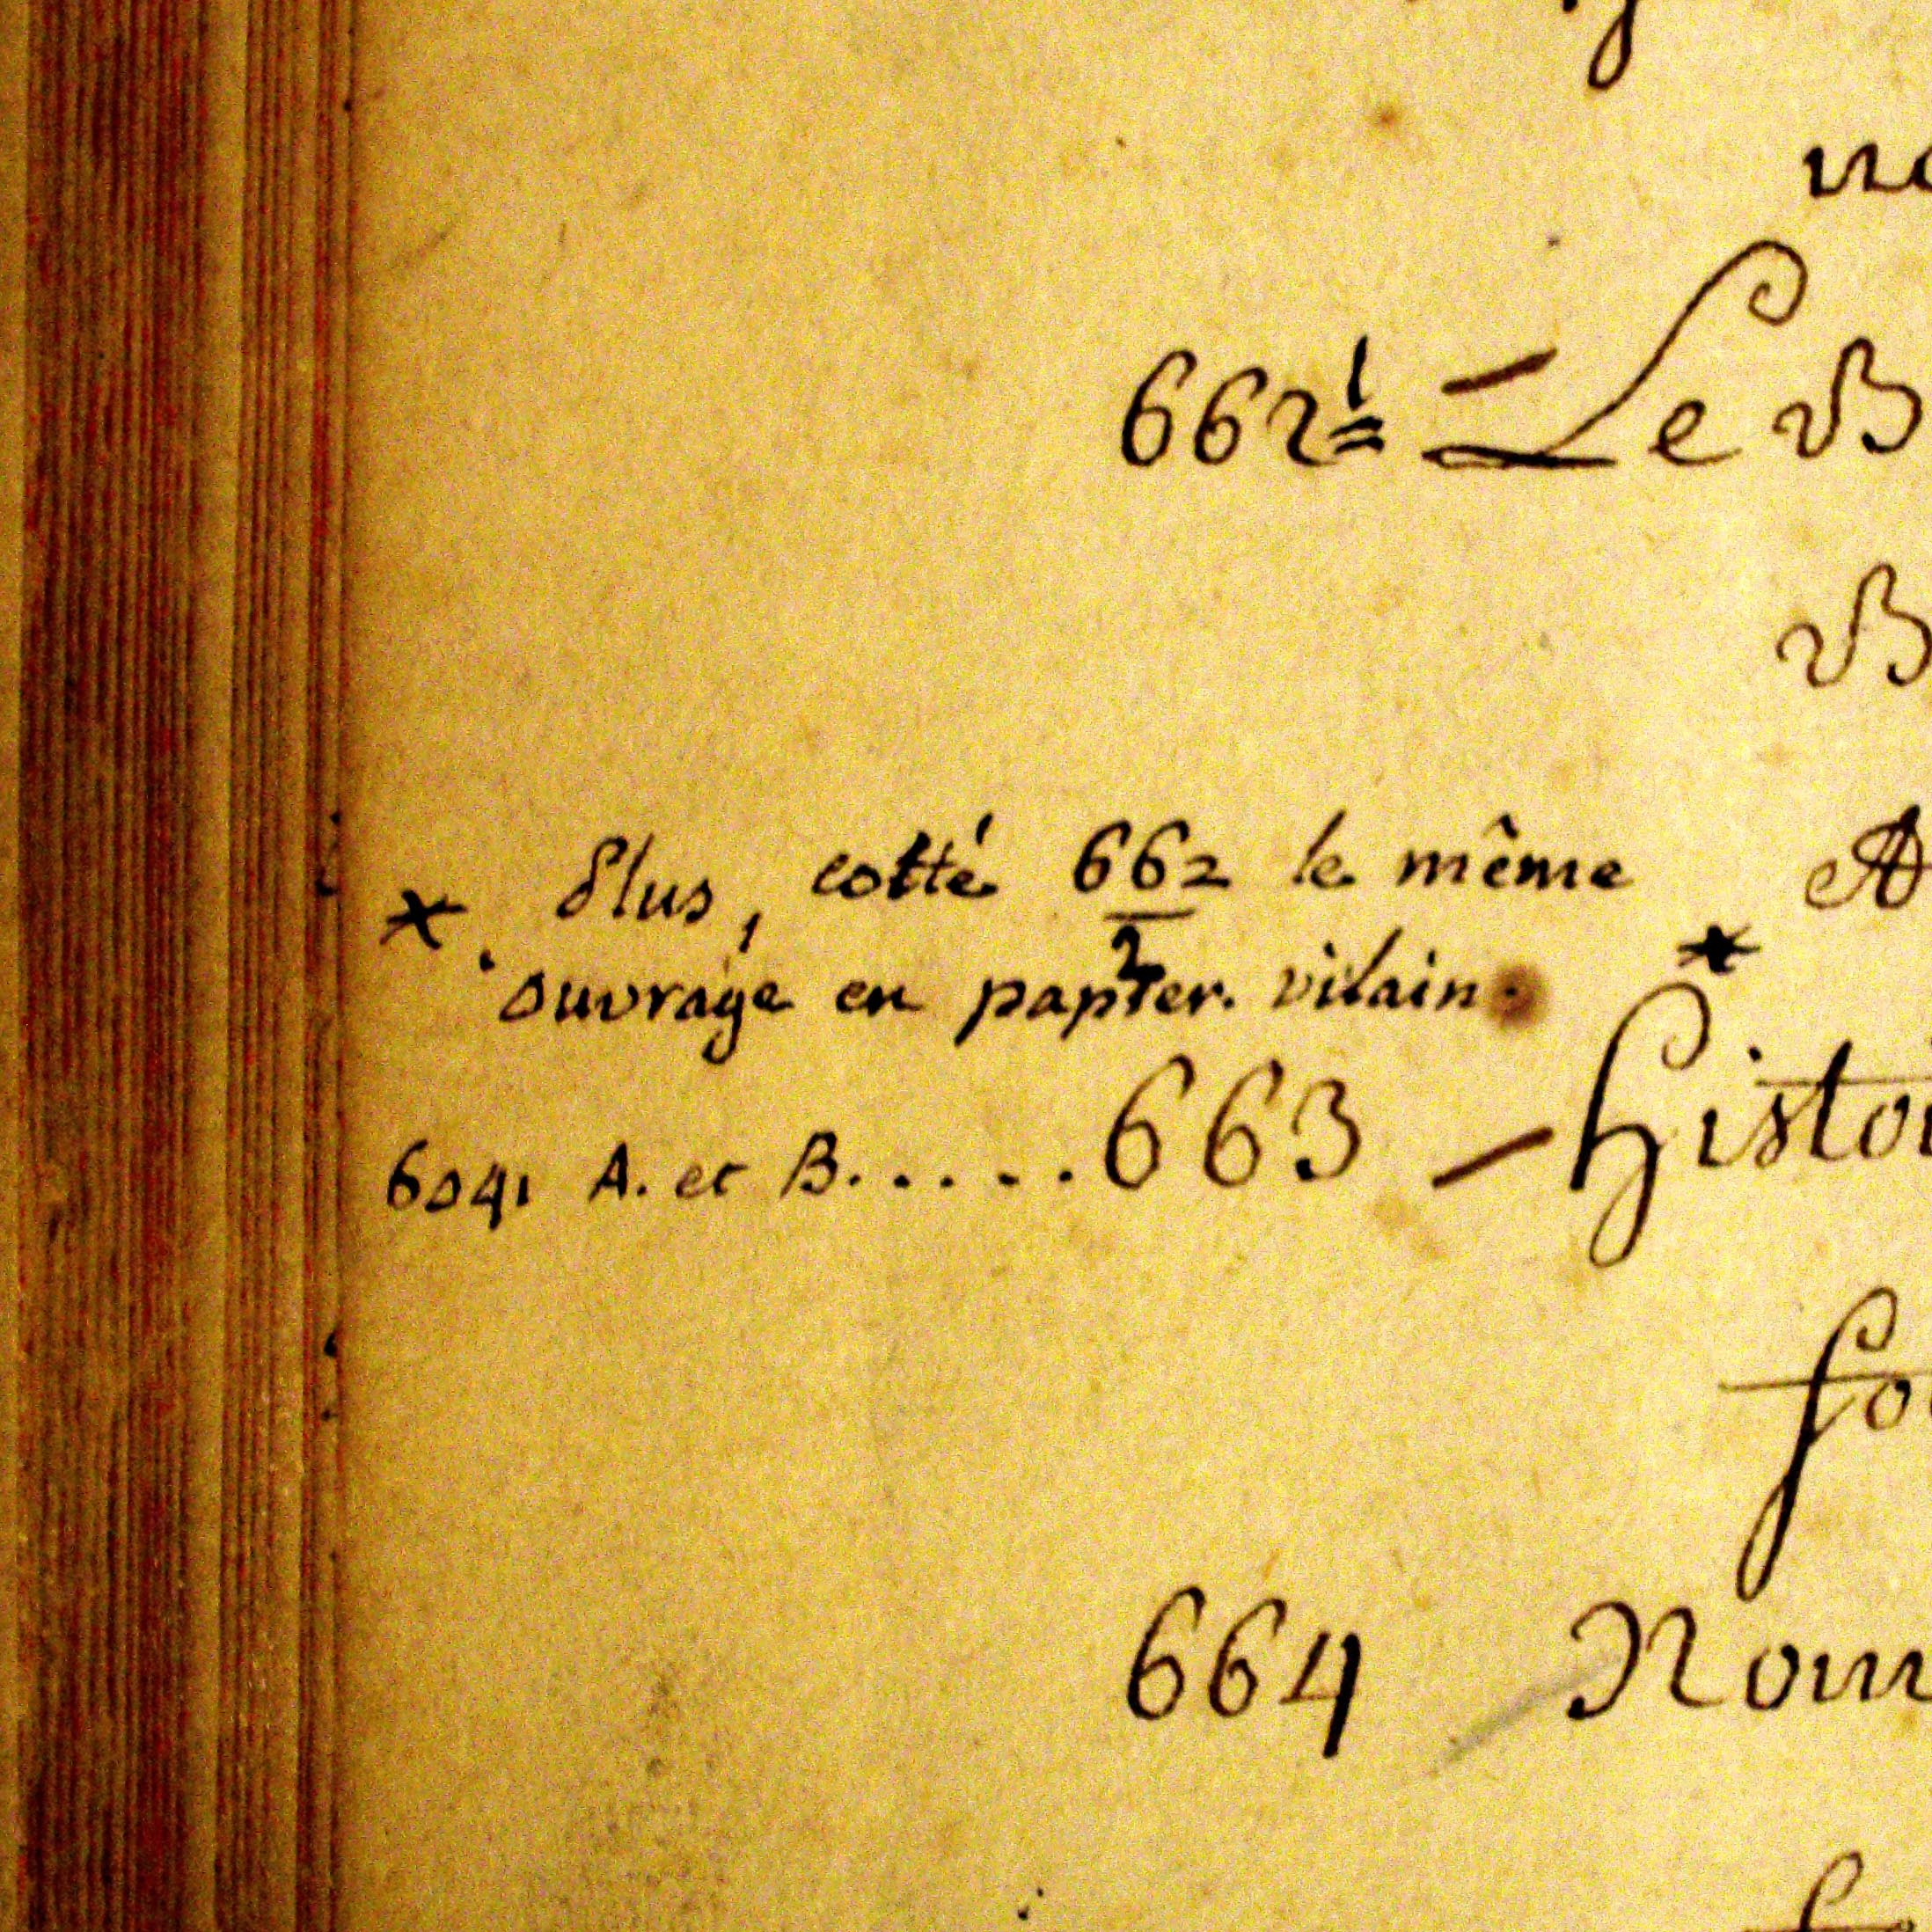 662 1 = Le B
* . Plus, cotté 662 le même
2
ouvrage en papier vilain.
*
6041 A. et B. . . . . . 663 — Histoi
fo
664 Rom